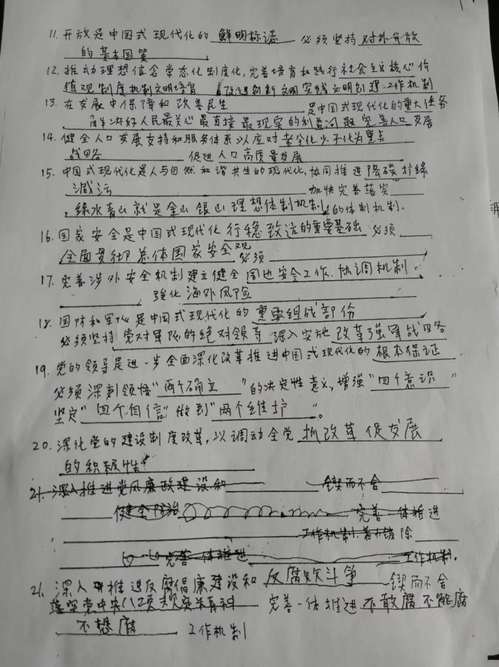 11. 开放是中国式现代化的 鲜明标识 必须坚持 对外开放
的基本国策
12. 推动理想信念常态化制度化, 完善培育和践行社会主义核心价
值观制度机制文明培育 文明实践 文明创建 工作机制
13. 在发展中保障和改善民生 是中国式现代化的重大任务
人民最关心最直接最现实的利益问题 完善人口发展
14. 健全人口发展支持和服务体系以应对老龄化少子化为重点
战略 促进人口高质量发展
15. 中国式现代化是人与自然和谐共生的现代化, 协同推进降碳扩绿
减污 加快完善落实
绿水青山就是金山银山理想体制机制 的体制机制.
16. 国家安全是中国式现代化 行稳致远的重要基础 必须
全面贯彻总体国家安全观
17. 完善涉外安全机制建立健全周边安全工作. 协调机制
强化海外风险
18. 国防和军队是中国式现代化的 重要组成部份
必须坚持党对军队的绝对领导 深入实施 改革强军战略
19. 党的领导是进一步全面深化改革推进中国式现代化的根本保证
必须深刻领悟"两个确立"的决定性意义, 增强"四个意识"
坚定"四个自信"做到"两个维护"。
20. 深化党的建设制度改革, 以调动全党 抓改革促发展
的积极性
21. 深入推进党风廉政建设和 锲而不舍
健全 完善一体推进
工作机制
完善一体推进 工作机制.
21. 深入推进反腐倡廉建设和 反腐败斗争 锲而不舍
落实党中央八项 完善一体推进 不敢腐不能腐
不想腐 工作机制